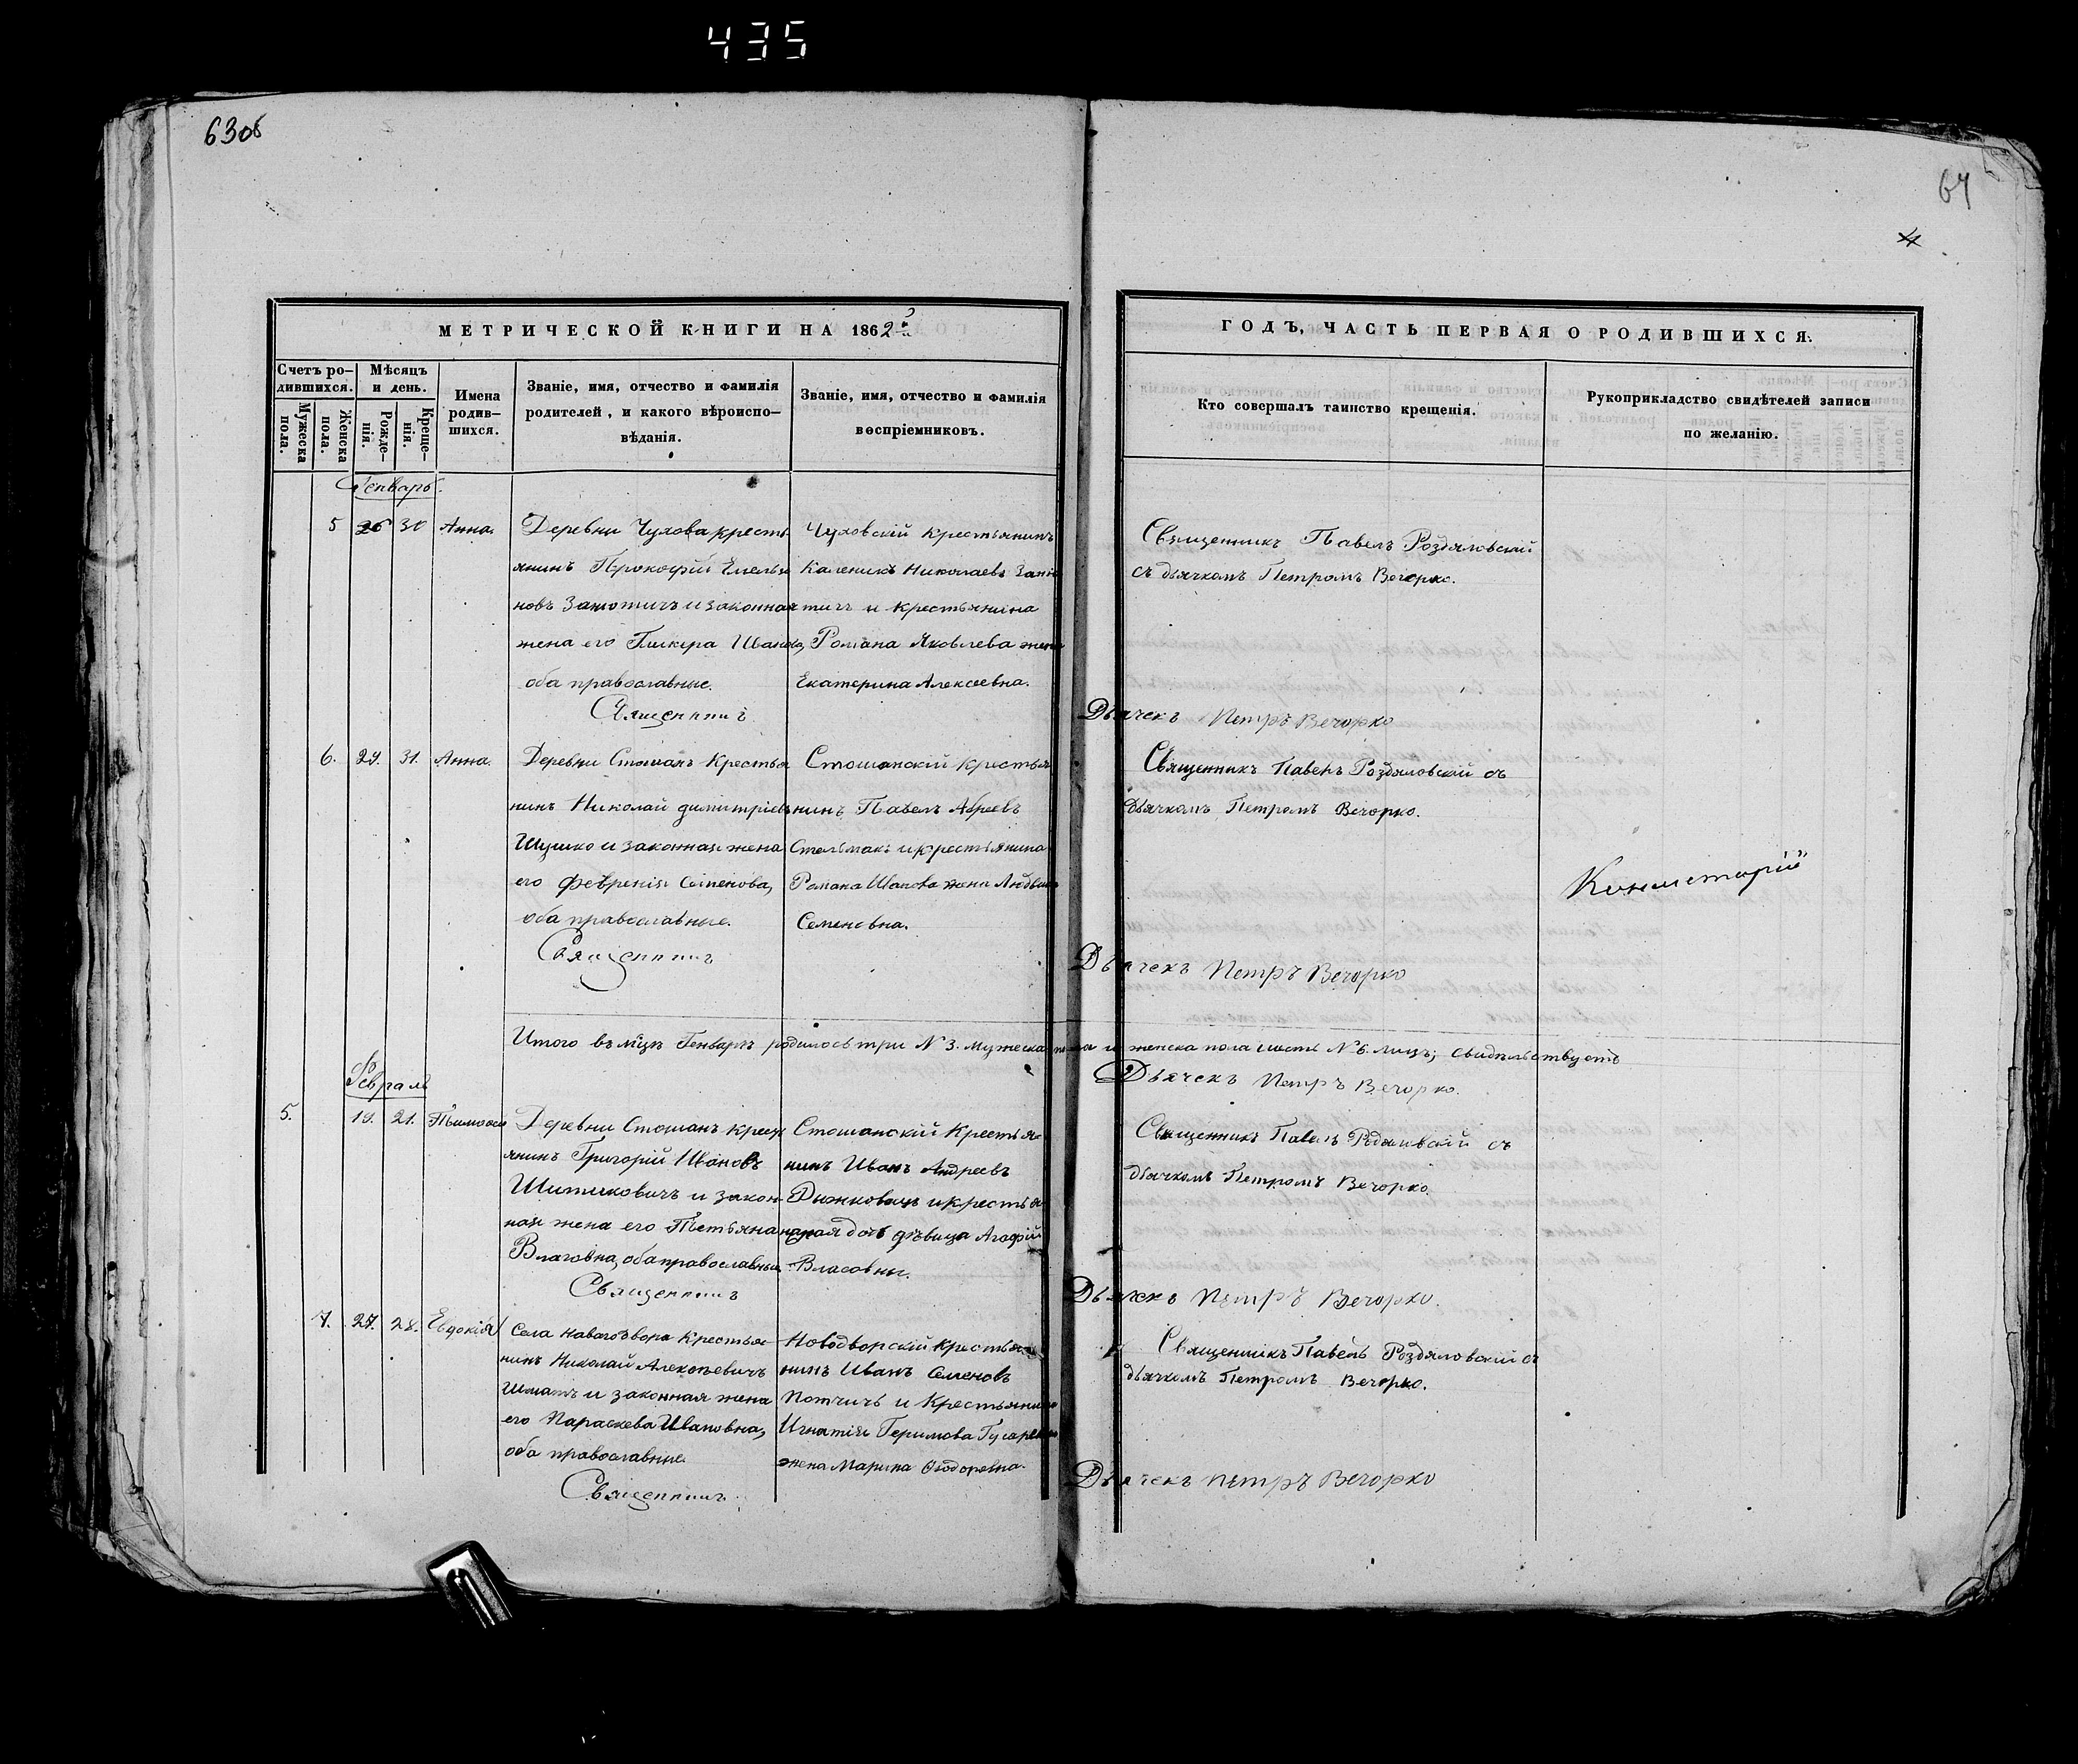 435
63об
64
4
МЕТРИЧЕСКОЙ КНИГИ НА 1862й
ГОДЪ, ЧАСТЬ ПЕРВАЯ О РОДИВШИХСЯ.
Счетъ ро-
дившихся.
Мужеска
пола.
Женска
пола.
Мѣсяцъ
и день.
Рожде-
нія.
Креще-
нія.
Имена
родив-
шихся.
Званіе, имя, отчество и фамилія
родителей, и какого вѣроиспо-
вѣданія.
Званіе, имя, отчество и фамилія
воспріемниковъ.
Кто совершалъ таинство крещенія.
Рукоприкладство свидѣтелей записи
по желанію.
Генварь.
5 26 30 Анна.
Деревни Чухова кресть
янинъ Прокофій Емелья
новъ и законная
жена его Гликера Иванова,
оба православные.
Священникъ
Чуховскій крестьянинъ
Каленикъ Николаевъ
и крестьянина
Романа Яковлева жена
Екатерина Алексеевна.
Священникъ Павелъ Роздяловскій
съ дьячкомъ Петромъ Вечорко.
Дьячекъ Петръ Вечорко
6. 29. 31. Анна.
Деревни Стошанъ Крестья
нинъ Николай Димитріевъ
Шушко и законная жена
его Февренія Семенова,
оба православные.
Священникъ
Стошанскій крестья
нинъ Павелъ
Стельмахъ и крестьянина
Романа жена
Семеновна.
Священникъ Павелъ Роздяловскій съ
дьячкомъ Петромъ Вечорко.
Дьячекъ Петръ Вечорко
Итого въ мцѣ Генварѣ родилось три N 3. мужеска пола и женска пола шесть N 6. лицъ; свидѣльствуетъ
Дьячекъ Петръ Вечорко.
Февраль
5. 19. 21. Тимофей
Деревни Стошанъ крест
янинъ Григорій Ивановъ
Шитиковичъ и закон
ная жена его Татьяна
оба православные.
Священникъ
Стошанскій Крестья
нинъ Иванъ Андреевъ
и крестья
дочь дѣвица Агафій
Власовны.
Священникъ Павелъ Роздяловскій съ
дьячкомъ Петромъ Вечорко.
Дьячекъ Петръ Вечорко.
7. 27. 28. Евдокія
Села Новагодвора Крестья
нинъ Николай Алексѣевичъ
Шматъ и законная жена
его Параскева Ивановна,
оба православные.
Священникъ
Новодворскій крестья
нинъ Иванъ Семеновъ
Потчичъ и Крестьянина
Игнатія Геримова
жена Марина Ѳеодоровна.
Священникъ Павелъ Роздяловскій съ
дьячкомъ Петромъ Вечорко.
Дьячекъ Петръ Вечорко